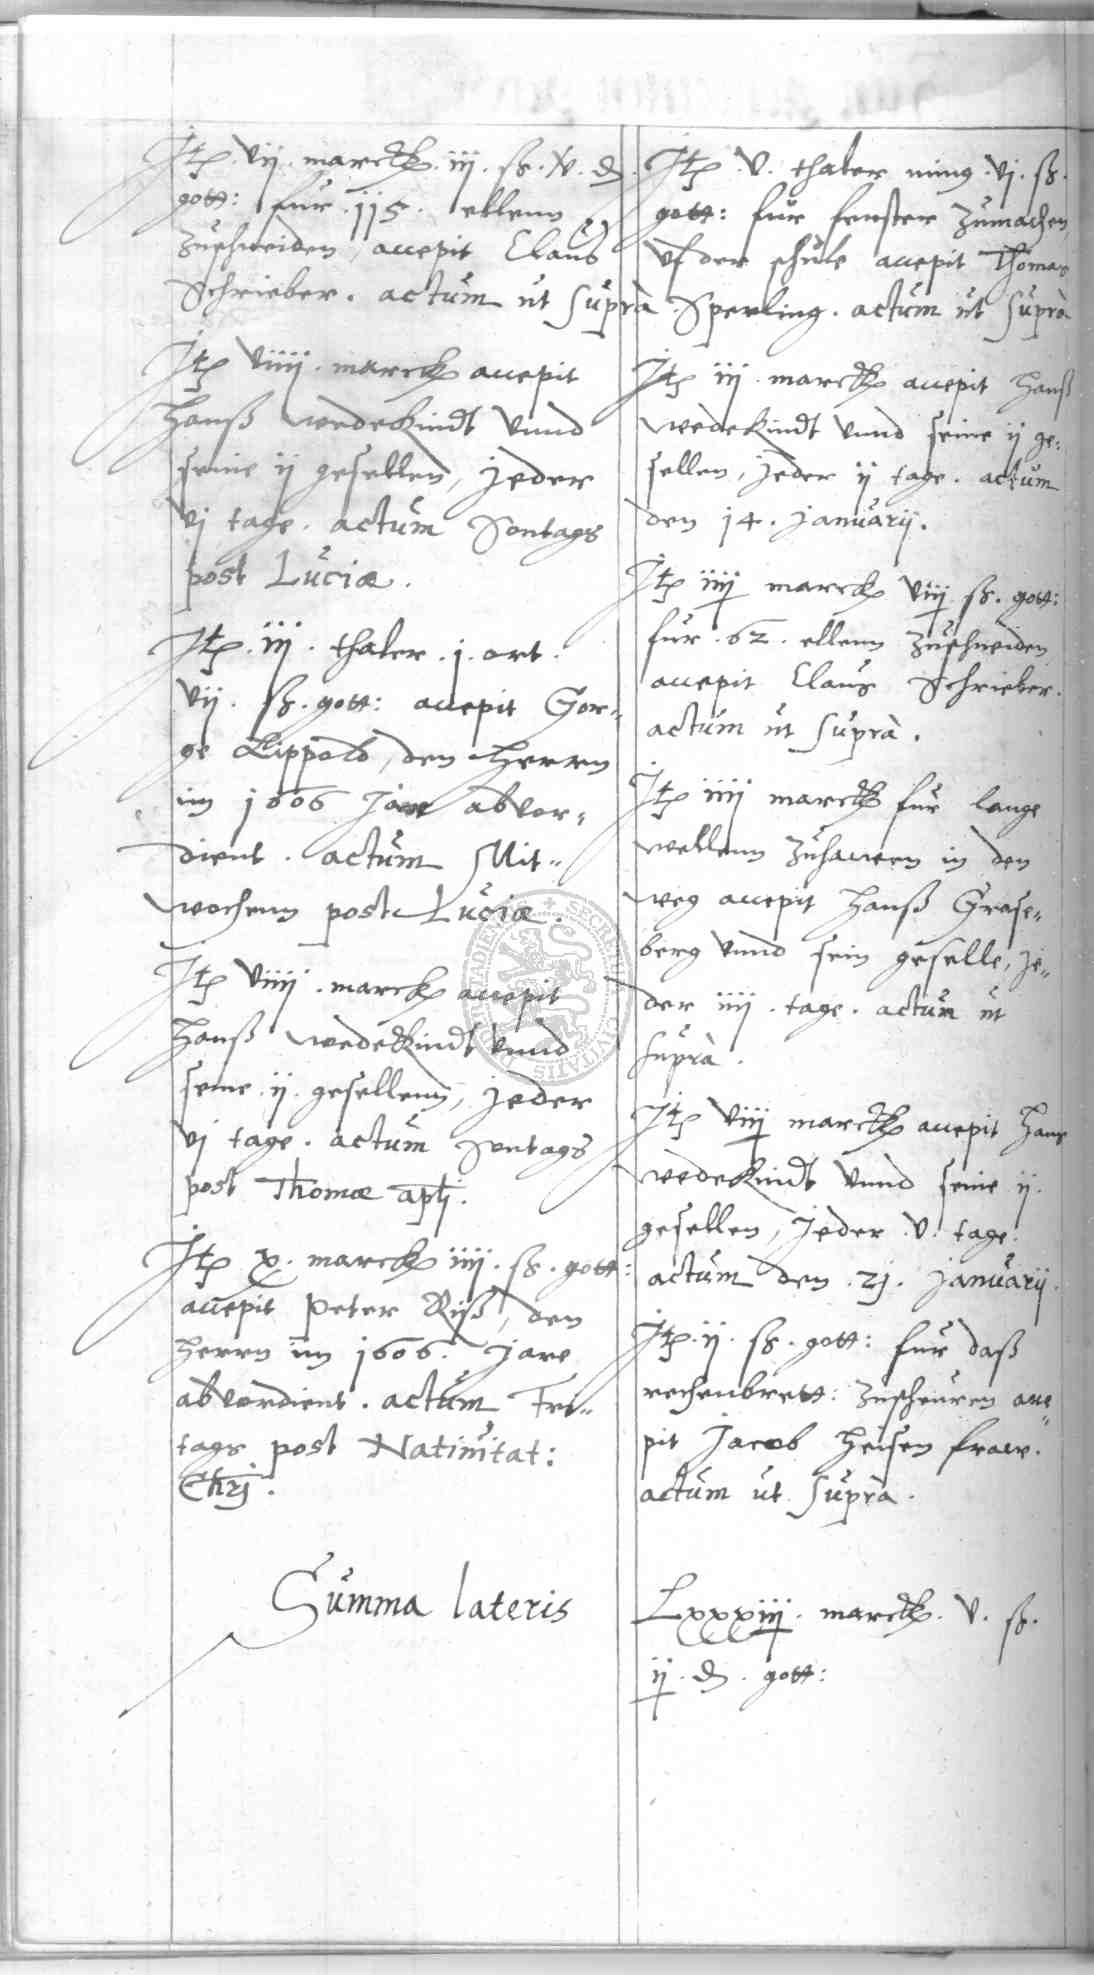 Itꝫ. vij. marck. iij. ß. v. ₰.
gott: für 115. ellenn
zuschneiden, accepit Claus
Schrieber. actum ut supra
Itꝫ viiij. marck accepit
Hanß Wedekindt vnnd
seine ij gesellen, jeder
vj tage. actum Sontags
post Luciæ.
Itꝫ. iij. thaler. j. ort.
vij. ß. gott: accepit Gor-
ge Lippold, den Herrn
im 1606 Jare abvor-
dient. actum Mit-
wochenn post Luciæ.
Itꝫ viiij. marck accepit
Hanß Wedekindt vnnd
seine. ij. gesellenn, jeder
vj tage. actum Sontags
post Thomæ aplj.
Itꝫ x. marck iiij. ß. gott:
accepit Peter Riß, den
Herrn im 1606. Jare
abvordient. actum Fri-
tags post Natiuitat:
Chrj.
Itꝫ. v. thaler ming. vj. ß.
gott: für fenster zumachen
vf der schule accepit Thomas
Sperling. actum ut supra
Itꝫ iij. marck accepit Hanß
Wedekindt vnnd seine ij ge-
sellen, jeder ij tage. actum
den 14. Januarij.
Itꝫ iiij marck viij ß. gott:
für. 62. ellenn zuschneiden
accepit Claus Schrieber.
actum ut supra.
Itꝫ iiij marck für lange
wellenn zuhawen in den
weg accepit Hanß Grase-
berg vnnd sein geselle, je-
der iiij. tage. actum ut
supra.
Itꝫ viij marck accepit Hans
Wedekindt vnnd seine ij.
gesellen, jeder. v. tage.
actum den. 21. Januarij.
Itꝫ. ij. ß. gott: für daß
rechenbrett: zuscheuren acce-
pit Jacob Heisen fraw.
actum ut supra.
Summa lateris
Lxxxiij. marck. v. ß.
ij. ₰. gott:
SECRETU CIVITATIS